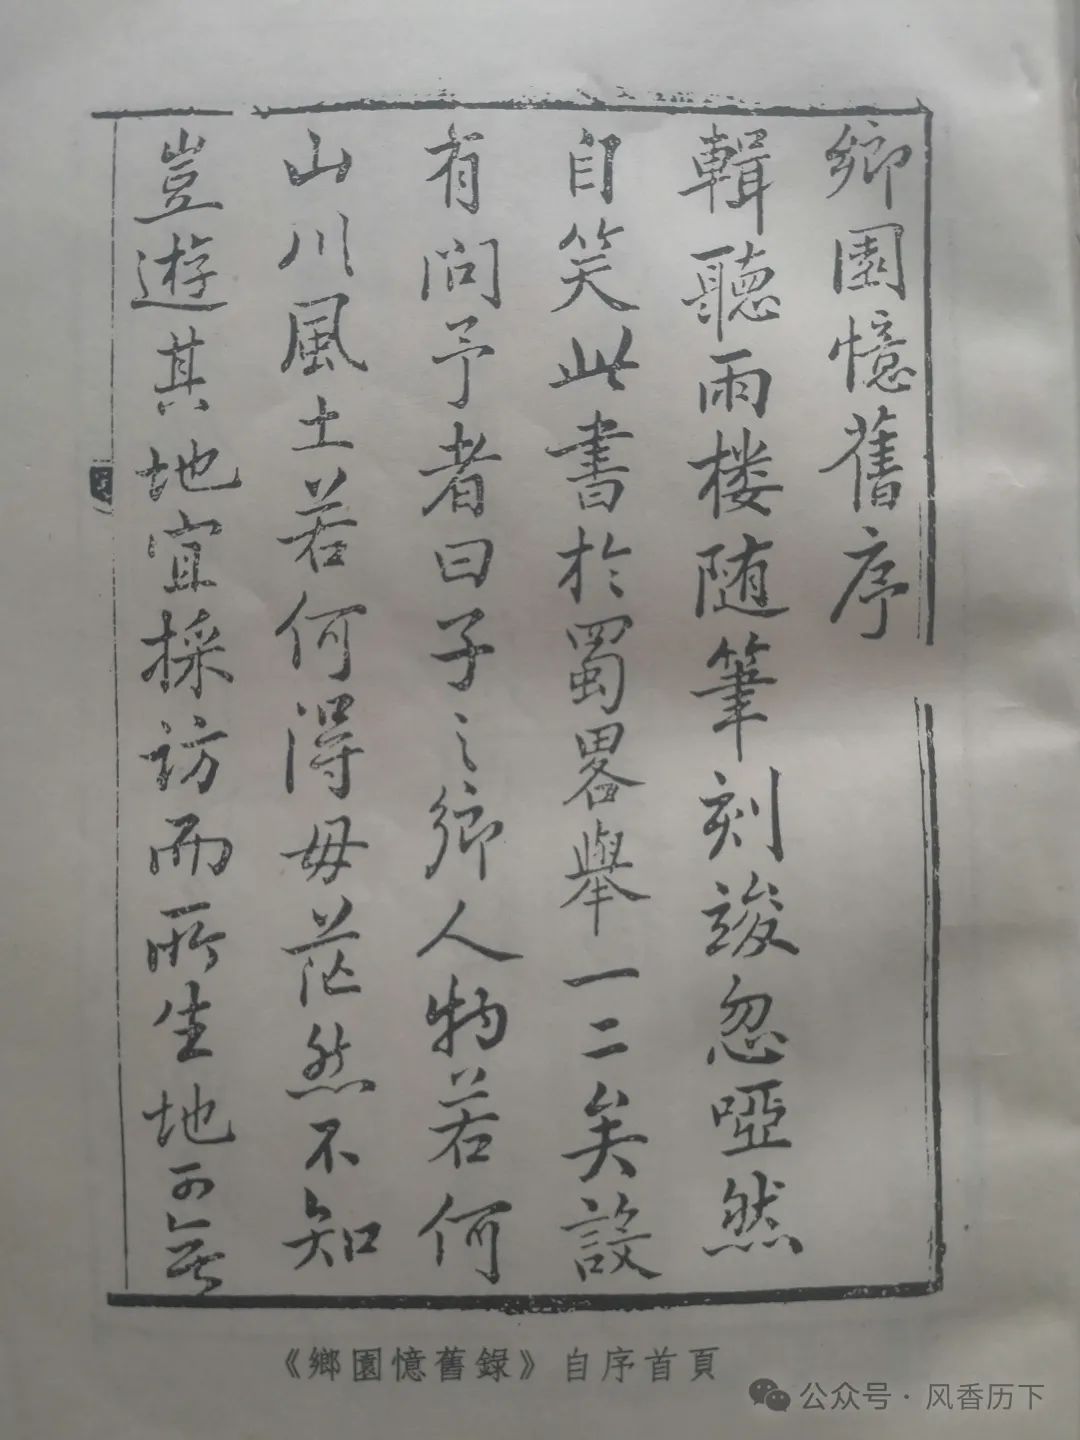 鄉園憶舊序
輯聽雨楼随筆刻竣忽啞然
自笑此書於蜀畧舉一二矣設
有問予者曰子之鄉人物若何
山川風土若何得毋茫然不知
豈遊其地宜採訪而所生地可無
《鄉園憶舊錄》自序首頁
公众号·风香历下